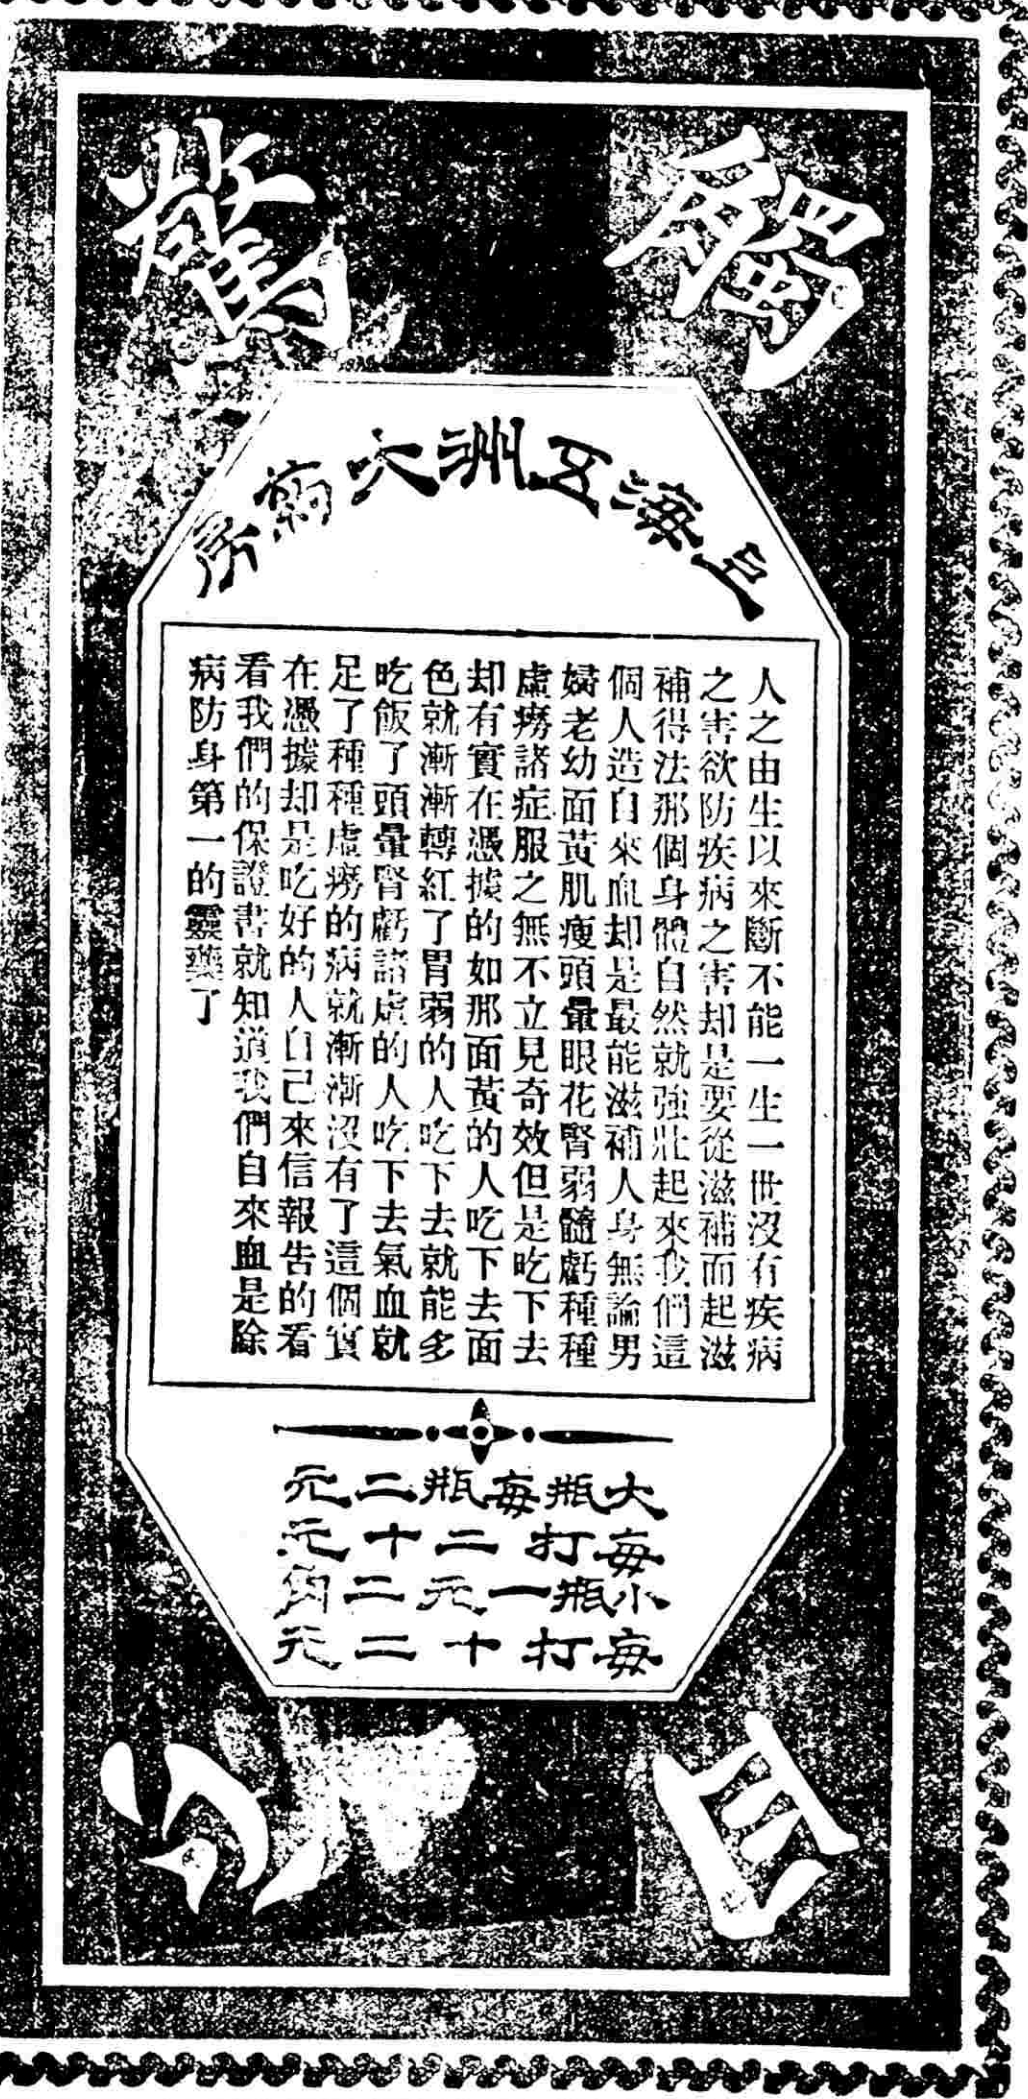 觸目驚心
上海五洲大葯房
人之由生以來斷不能一生一世沒有疾病
之害欲防疾病之害却是要從滋補而起滋
補得法那個身體自然就強壯起來我們這
個人造自來血却是最能滋補人身無論男
婦老幼面黃肌瘦頭暈眼花腎弱髓虧種種
虛癆諸症服之無不立見奇效但是吃下去
却有實在憑據的如那面黃的人吃下去面
色就漸漸轉紅了胃弱的人吃下去就能多
吃飯了頭暈腎虧諸虛的人吃下去氣血就
足了種種虛癆的病就漸漸沒有了這個實
在憑據却是吃好的人自己來信報告的看
看我們的保證書就知道我們自來血是除
病防身第一的靈藥了
大瓶每瓶二元
每打二十元
小瓶一元二角
每打十二元